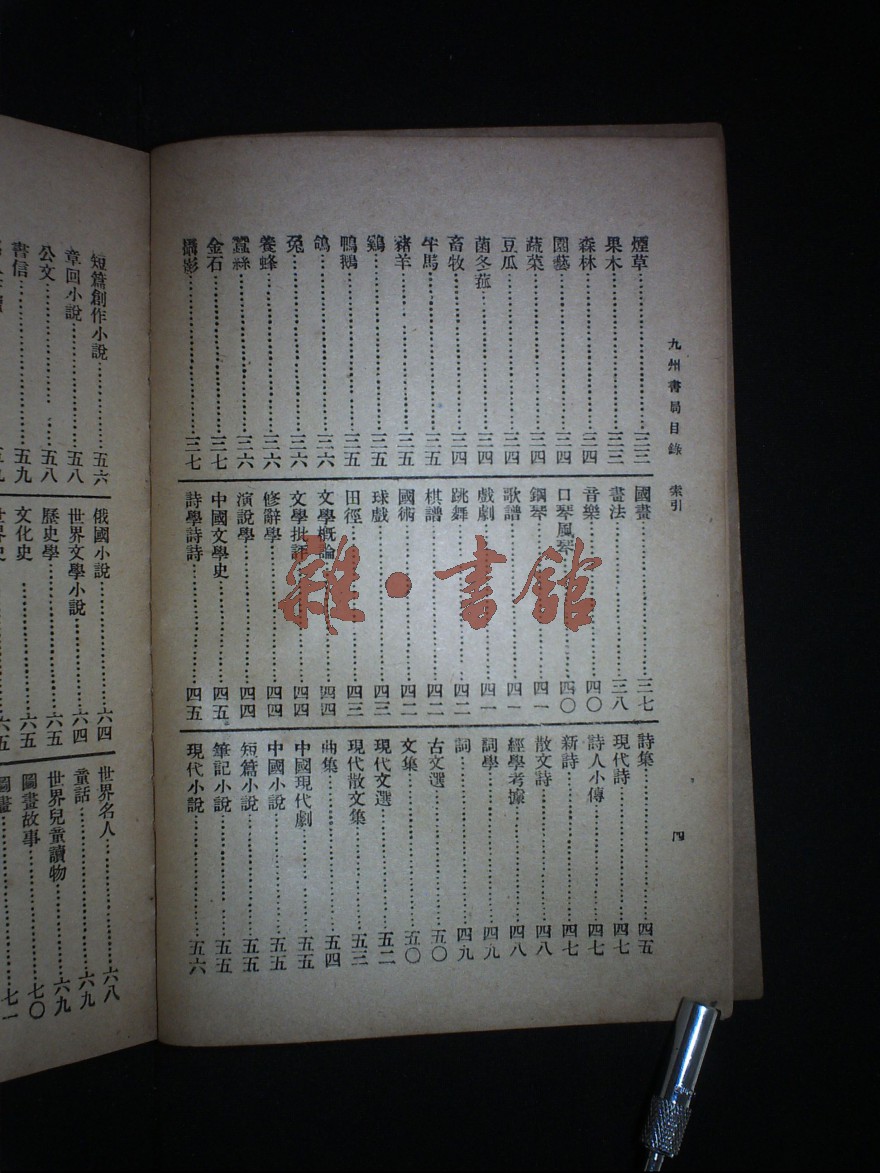 九州書局目錄 索引 四
煙草……三三
果木……三三
森林……三四
園藝……三四
蔬菜……三四
豆瓜……三四
菌冬菰……三四
畜牧……三四
牛馬……三五
豬羊……三五
鷄……三五
鴨鵝……三五
鴿……三六
兔……三六
養蜂……三六
蠶絲……三六
金石……三七
攝影……三七
國畫……三七
畫法……三八
音樂……四〇
口琴風琴……四〇
鋼琴……四一
歌譜……四一
戲劇……四一
跳舞……四二
棋譜……四二
國術……四二
球戲……四三
田徑……四三
文學概論……四四
文學批評……四四
修辭學……四四
演說學……四四
中國文學史……四五
詩學詩詩……四五
詩集……四五
現代詩……四七
詩人小傳……四七
新詩……四七
散文詩……四八
經學考據……四八
詞學……四九
詞……四九
古文選……五〇
文集……五〇
現代文選……五二
現代散文集……五三
曲集……五四
中國現代劇……五五
中國小說……五五
短篇小說……五五
筆記小說……五五
現代小說……五六
雜·書館
短篇創作小說……五六
章回小說……五八
公文……五八
書信……五九
俄國小說……六四
世界文學小說……六四
歷史學……六五
文化史……六五
世界史……六五
世界名人……六八
童話……六九
世界兒童讀物……六九
圖畫故事……七〇
圖畫……七一